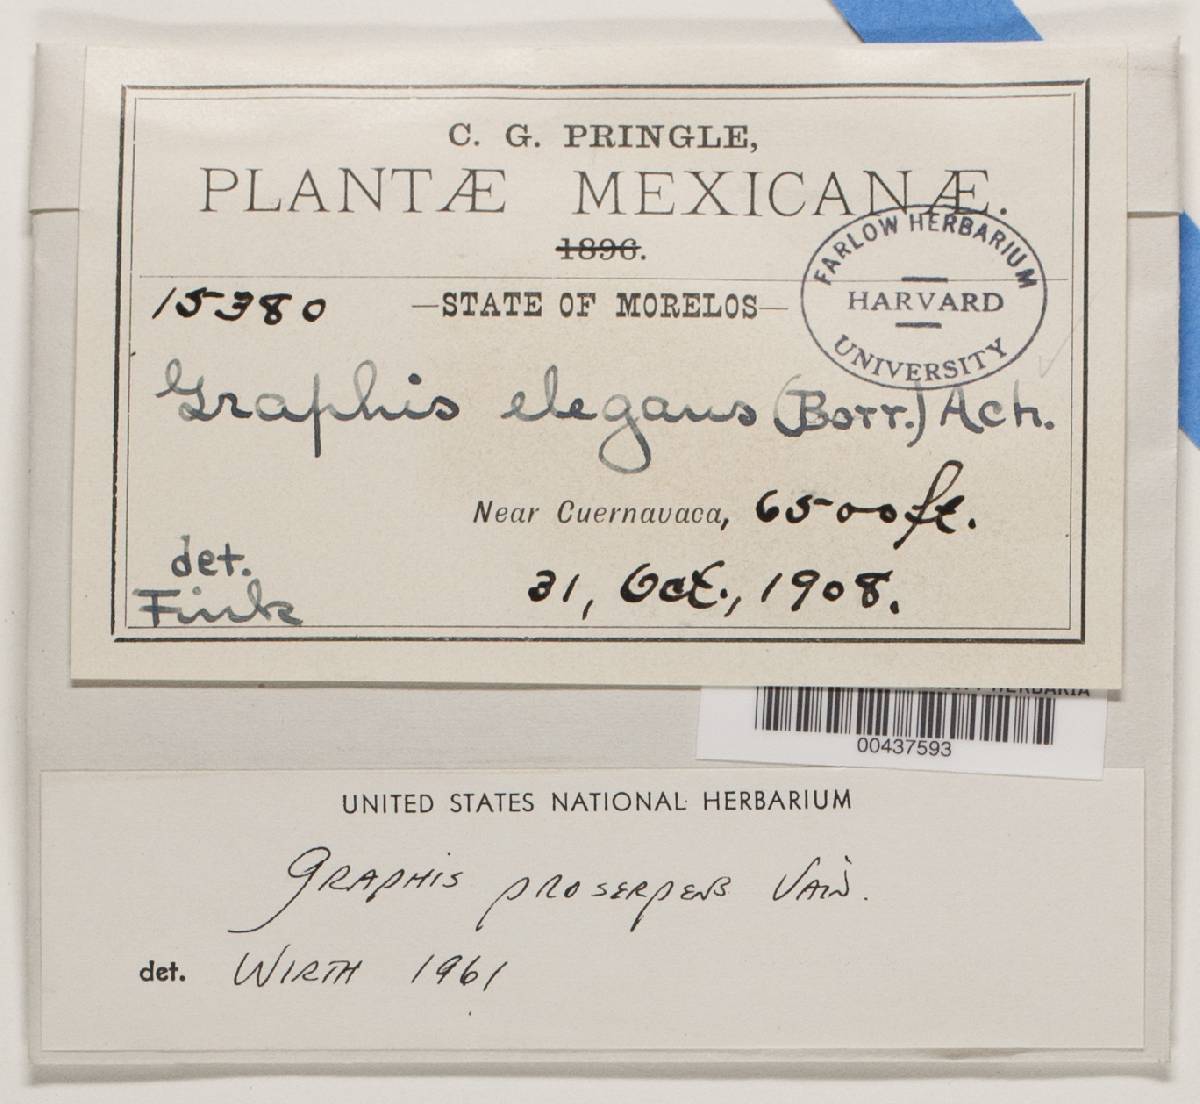 C. G. PRINGLE,
PLANTÆ MEXICANÆ.
1896.
FARLOW HERBARIUM
HARVARD
UNIVERSITY
15380 —STATE OF MORELOS—
Graphis elegans (Borr.) Ach.
Near Cuernavaca, 6500 ft.
31, Oct., 1908.
det.
Fink
HERBARIA
00437593
UNITED STATES NATIONAL HERBARIUM
GRAPHIS PROSERPENS VAIN.
det. WIRTH 1961